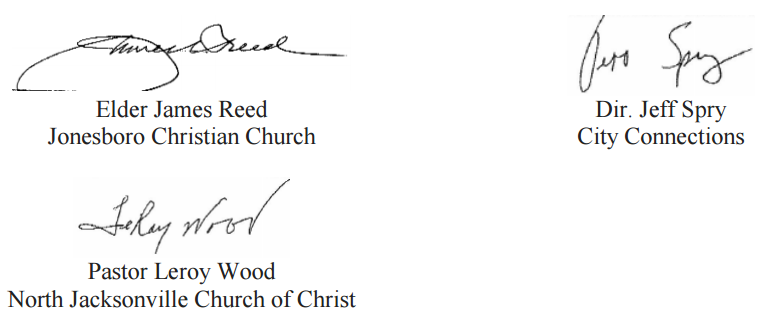 James D Reed
Elder James Reed
Jonesboro Christian Church
Jeff Spry
Dir. Jeff Spry
City Connections
LeRoy Wood
Pastor Leroy Wood
North Jacksonville Church of Christ